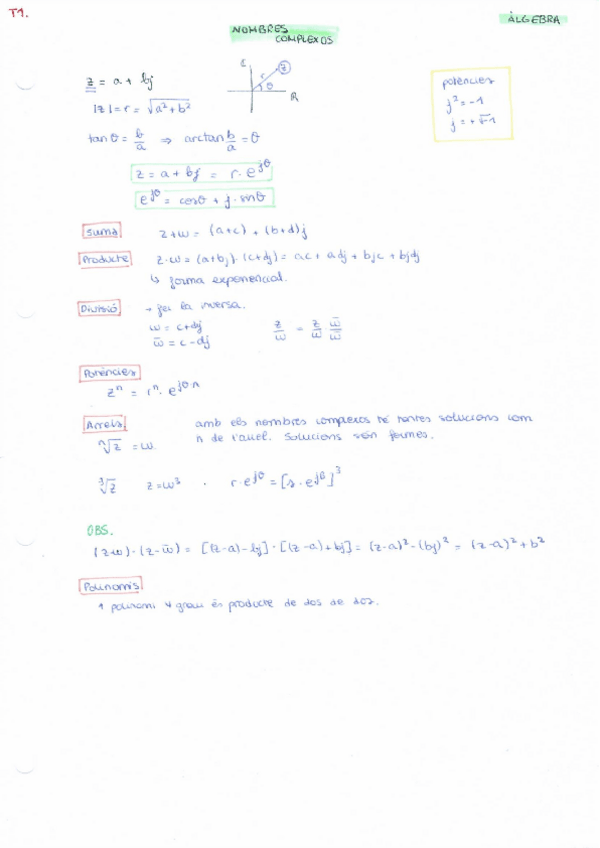 T1.
ÀLGEBRA
NOMBRES
COMPLEXOS
z = a + bj
C
r
z
θ
R
potències
j² = -1
j = +√-1
|z| = r = √a²+b²
tan θ = b/a ⇒ arctan b/a = θ
z = a + bj = r · e^jθ
e^jθ = cosθ + j · sinθ
Suma
z+w = (a+c) + (b+d)j
Producte
z·w = (a+bj)·(c+dj) = ac + adj + bjc + bjdj
↳ forma exponencial.
Divisió
→ fer la inversa.
w = c+dj
w̄ = c-dj
z/w = z/w w̄/w̄
Potències
zⁿ = rⁿ · e^jθ·n
Arrels
amb els nombres complexos té tantes solucions com
n de l'arrel. Solucions són
ⁿ√z = w
³√z z=w³ · r·e^jθ = [s·e^jβ]³
OBS.
(z-w)·(z-w̄) = [(z-a)-bj]·[(z-a)+bj] = (z-a)²-(bj)² = (z-a)²+b²
Polinomis
1 polinomi 4 grau és producte de dos de dos.